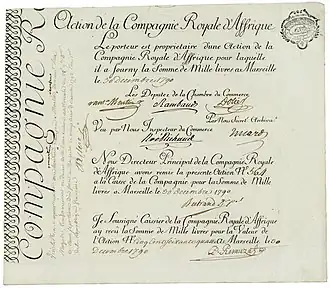 Action de la Compagnie Royale d'Affrique
Le porteur est propriétaire d'une Action de la
Compagnie Royale d'Affrique pour laquelle
il a fourny la Somme de Mille livres a Marseille
le 30 decembre 1790
Les Députés de la Chambre du Commerce
Rambaud
Par Nous Secret. Archivre.
Veu par Nous Inspecteur du Commerce
Nous Directeur Principal de la Compagnie Royale
d'Affrique avons remis la presente Action N.
a la Caisse de la Compagnie pour la Somme de Mille
livres a Marseille le 30 decembre 1790
Bertrand
Je Soussigné Caissier de la Compagnie Royale d'Affrique
ay receu la Somme de Mille livres pour la Valeur de
l'Action N. cinq cent soixante quatre A Marseille, le 30
decembre 1790
Compagnie R